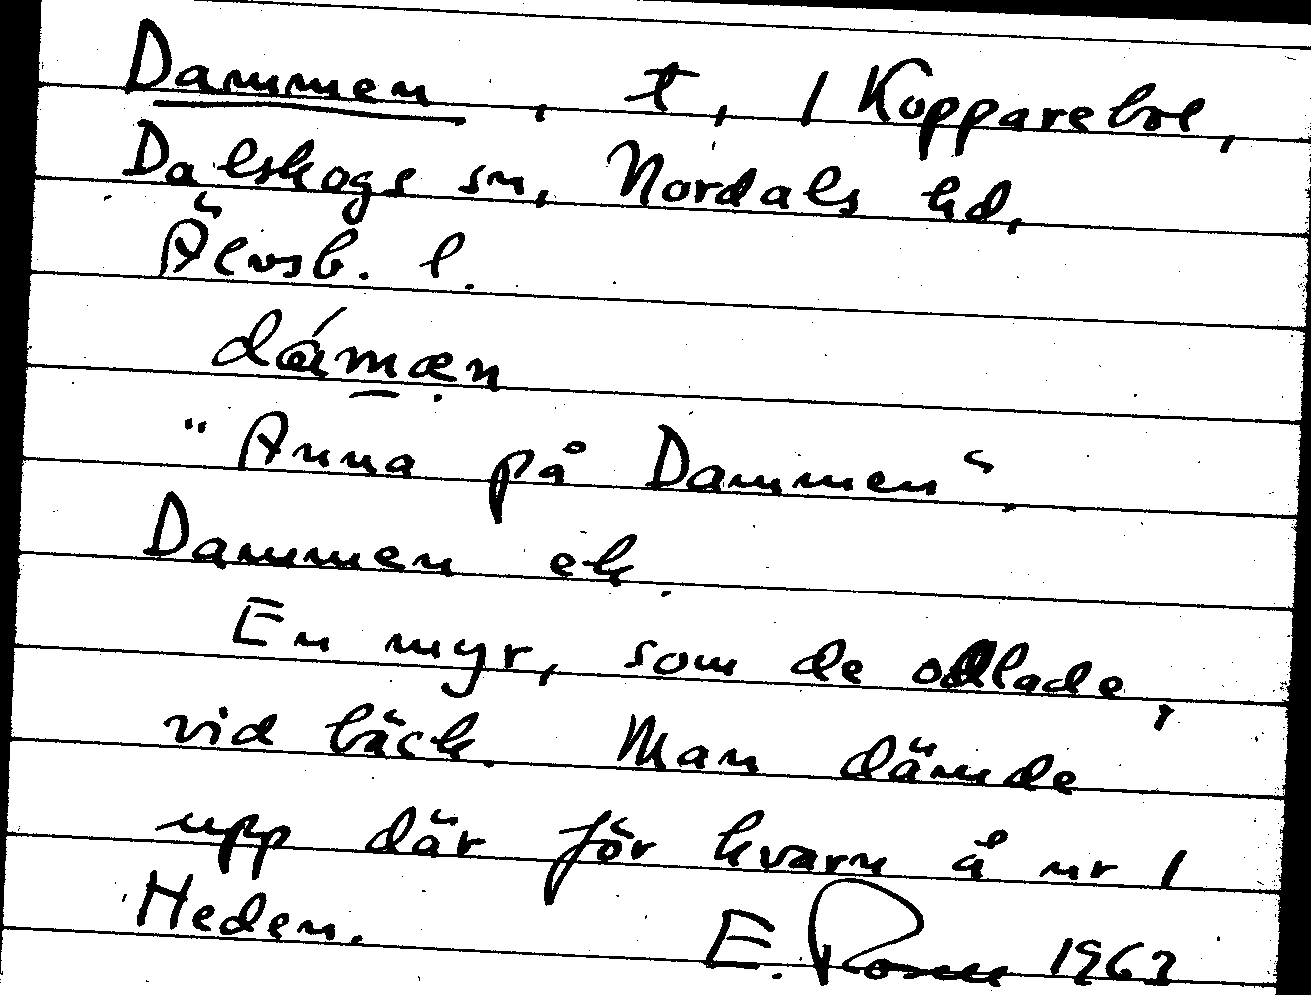 Dammen, t, 1 Kopparebol,
Dalskogs sn, Nordals hd,
Älvsb. l.
dámæn
"Anna på Dammen".
Dammen ek.
En myr, som de odlade,
vid bäck. Man dämde
upp där för kvarn å nr 1
Heden. E. 1963